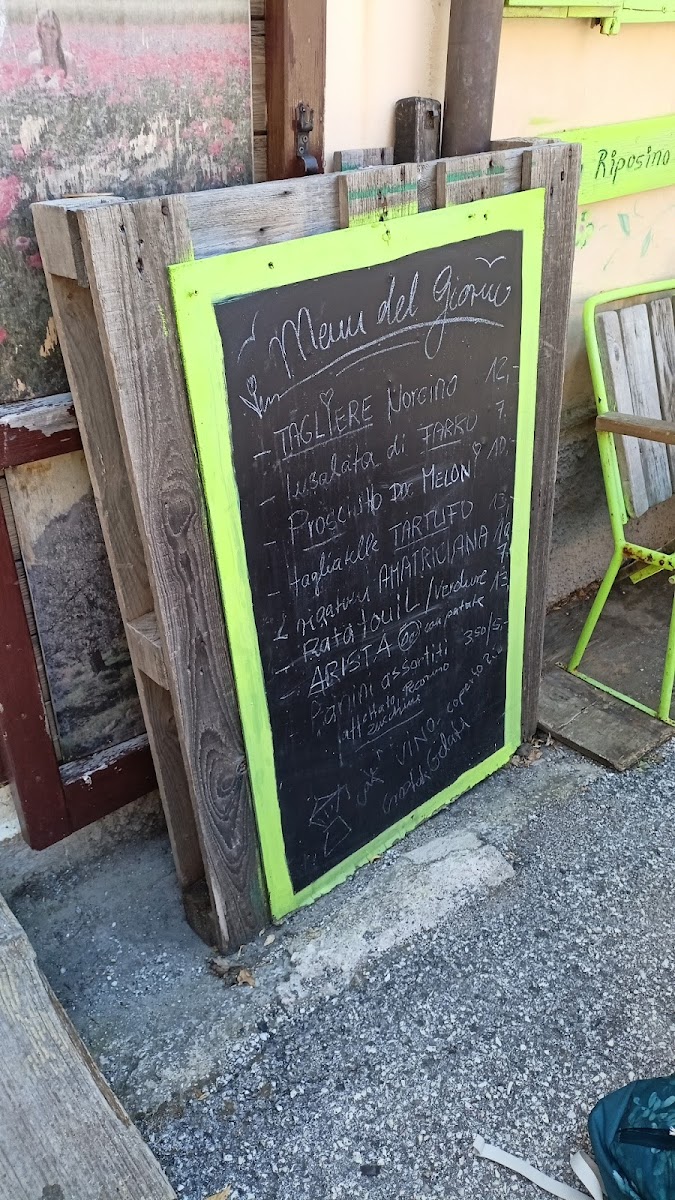 Riposino
Menu del Giorno
- TAGLIERE Norcino 12,-
- Insalata di FARRO 7.
- Prosciutto Da MELONi 10.-
- tagliatelle TARTUFO 13,-
- rigatoni AMATRICIANA
- RatatouiL/Verdure 7.
- ARISTA con patate 13,-
Panini assortiti 3.50/5,-
affettato Pecorino
zucchine
VINO coperto
Gelati